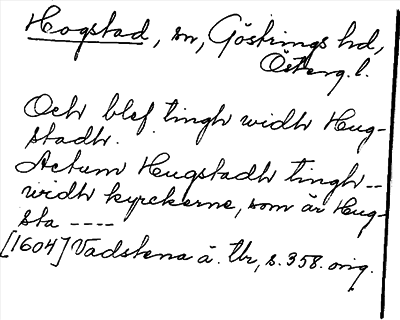 Hogstad, sn, Göstrings hd,
Österg. l.
Och blef tingh widh Hug-
stadh.
Actum Hugstadh tingh --
widh kyrckerne, som är Hug-
sta ----
[1604] Vadstena ä. Ur, s. 358. orig.